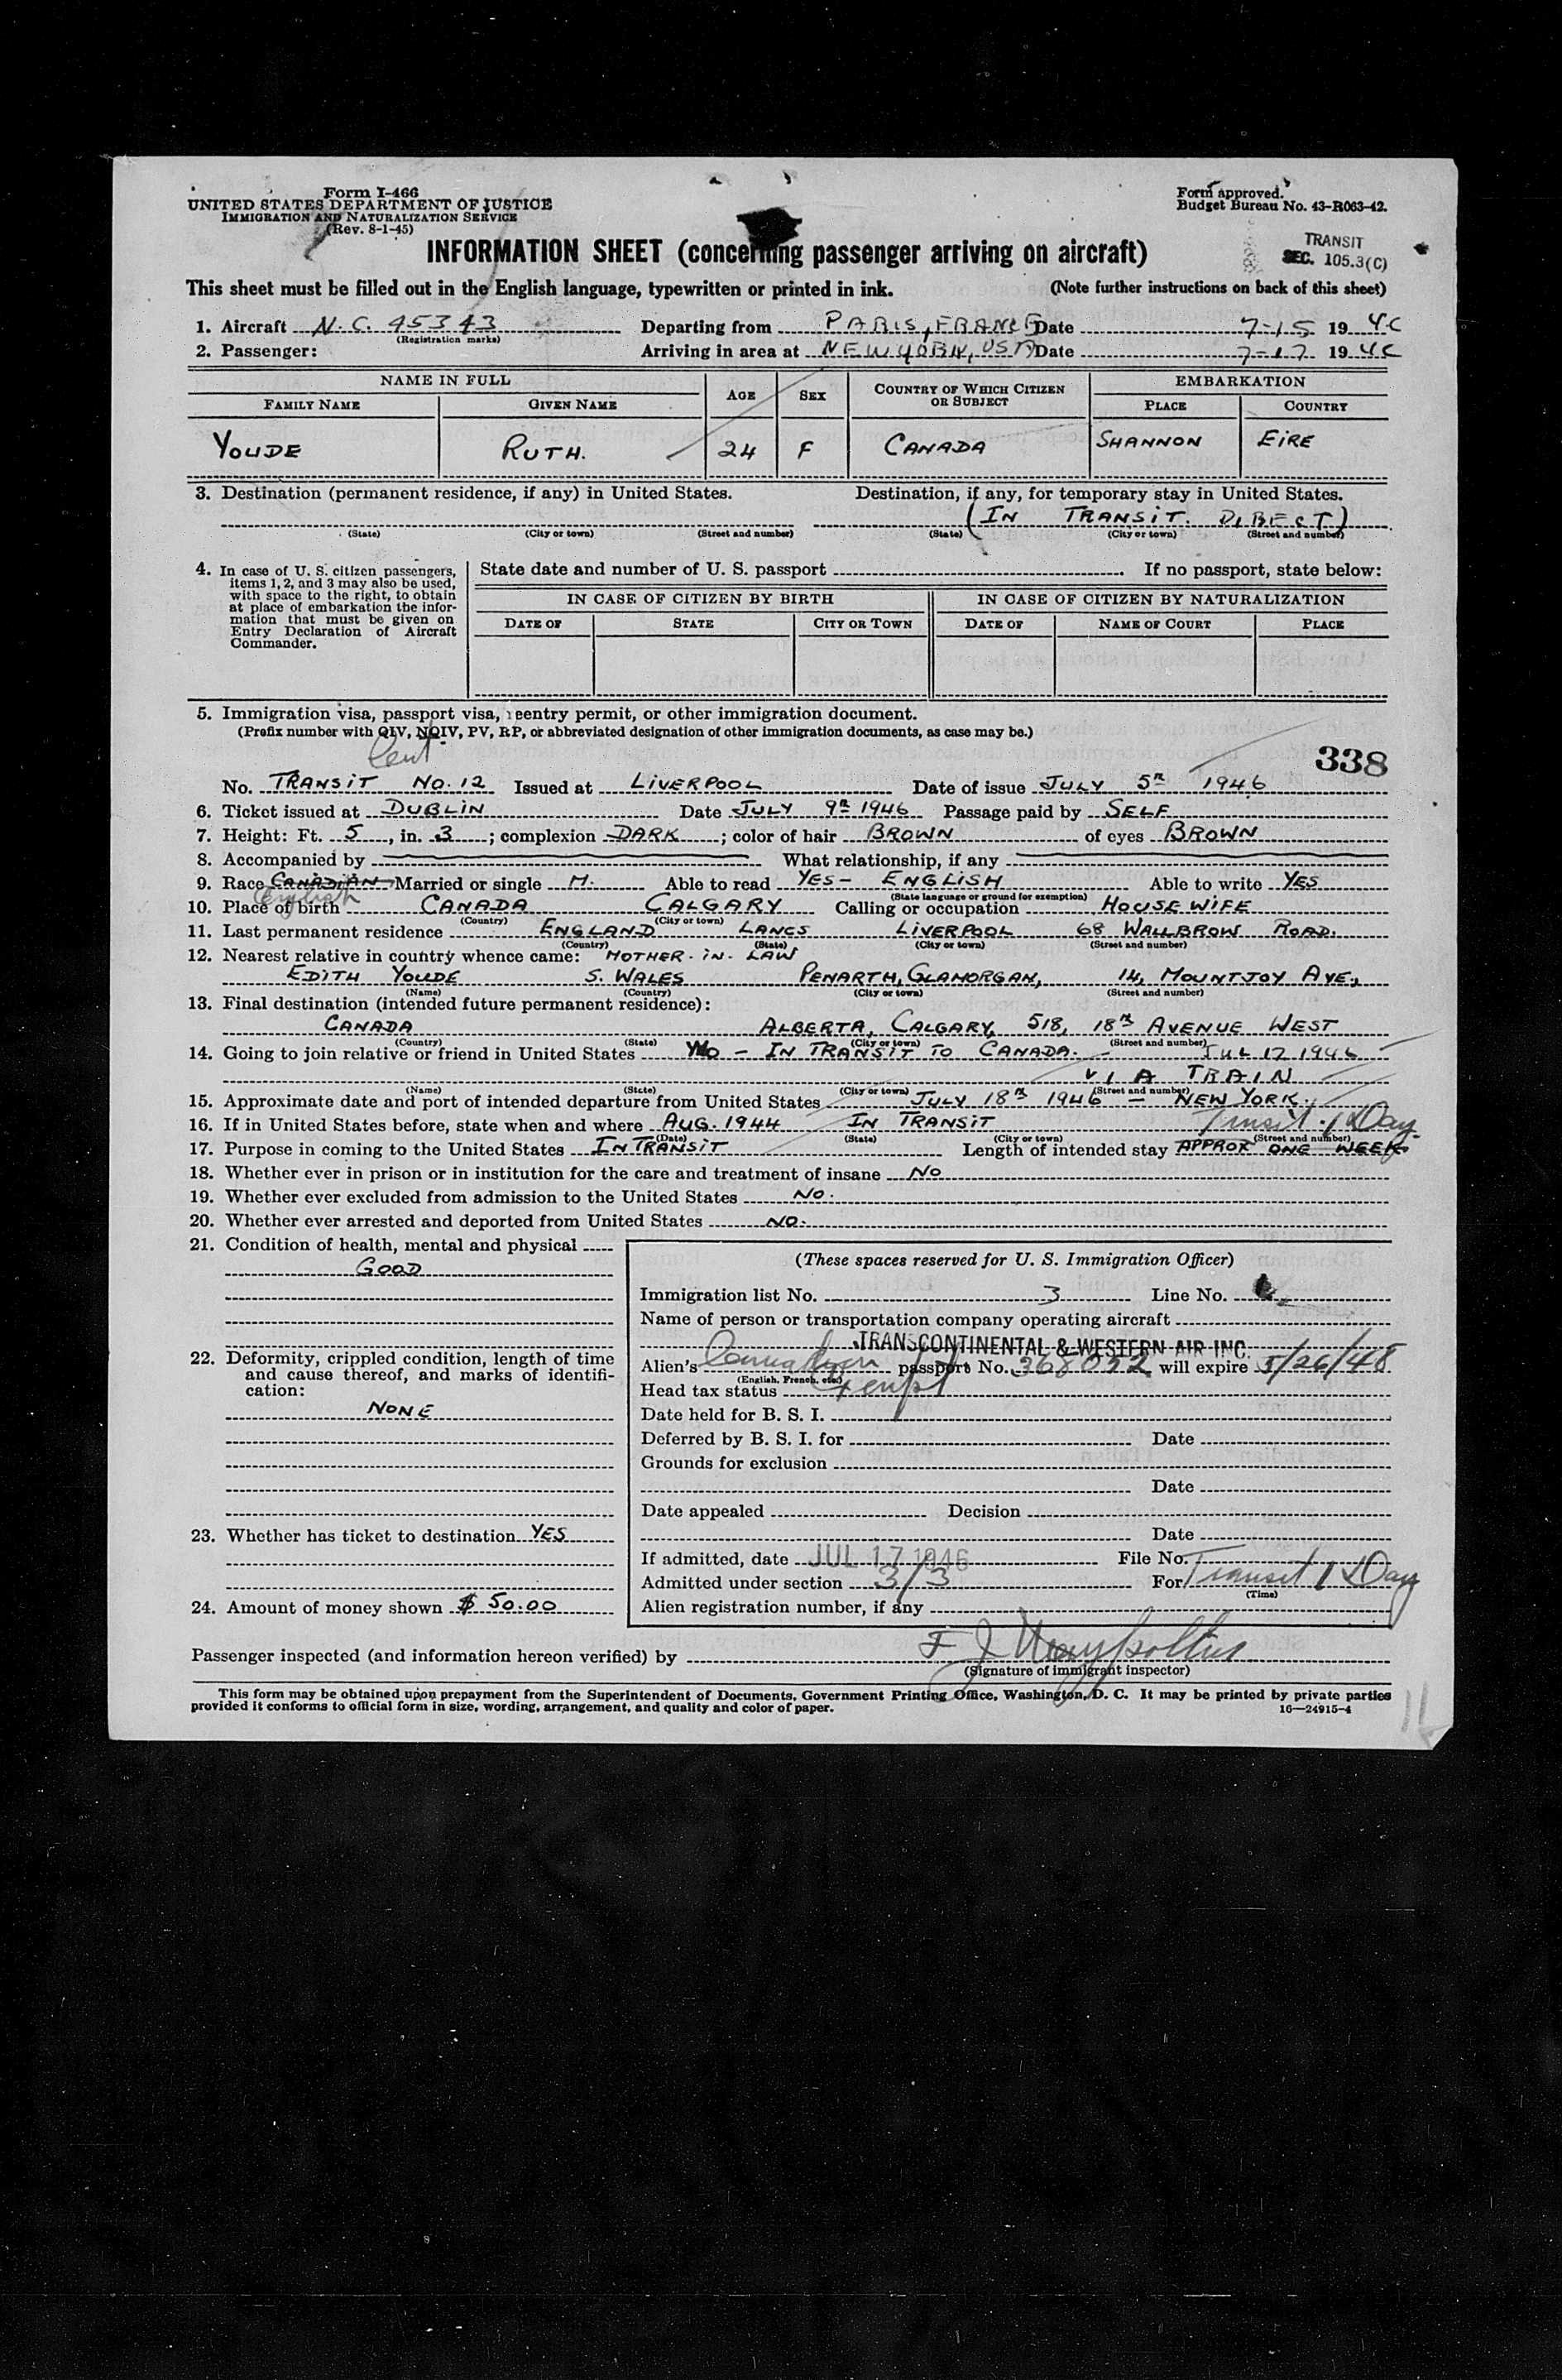 Form I-466
UNITED STATES DEPARTMENT OF JUSTICE
IMMIGRATION AND NATURALIZATION SERVICE
(Rev. 8-1-45)
Form approved.
Budget Bureau No. 43-R063-42.
TRANSIT
SEC. 105.3(C)
INFORMATION SHEET (concerning passenger arriving on aircraft)
This sheet must be filled out in the English language, typewritten or printed in ink. (Note further instructions on back of this sheet)
1. Aircraft N.C. 45343 Departing from PARIS, FRANCE Date 7-15 1946
(Registration marks)
2. Passenger: Arriving in area at NEW YORK, USA Date 7-17 1946
NAME IN FULL AGE SEX COUNTRY OF WHICH CITIZEN OR SUBJECT EMBARKATION
FAMILY NAME GIVEN NAME PLACE COUNTRY
YOUDE RUTH. 24 F CANADA SHANNON EIRE
3. Destination (permanent residence, if any) in United States. Destination, if any, for temporary stay in United States.
(IN TRANSIT. DIRECT)
(State) (City or town) (Street and number) (State) (City or town) (Street and number)
4. In case of U. S. citizen passengers, items 1, 2, and 3 may also be used, with space to the right, to obtain at place of embarkation the information that must be given on Entry Declaration of Aircraft Commander.
State date and number of U. S. passport If no passport, state below:
IN CASE OF CITIZEN BY BIRTH IN CASE OF CITIZEN BY NATURALIZATION
DATE OF STATE CITY OR TOWN DATE OF NAME OF COURT PLACE
5. Immigration visa, passport visa, reentry permit, or other immigration document.
(Prefix number with QIV, NQIV, PV, RP, or abbreviated designation of other immigration documents, as case may be.)
338
No. TRANSIT NO. 12 Issued at LIVERPOOL Date of issue JULY 5TH 1946
6. Ticket issued at DUBLIN Date JULY 9TH 1946 Passage paid by SELF
7. Height: Ft. 5, in. 3; complexion DARK; color of hair BROWN of eyes BROWN
8. Accompanied by What relationship, if any
9. Race CANADIAN English Married or single M. Able to read YES - ENGLISH Able to write YES
(State language or ground for exemption)
10. Place of birth CANADA CALGARY Calling or occupation HOUSEWIFE
(Country) (City or town)
11. Last permanent residence ENGLAND LANCS LIVERPOOL 68 WALLBROW ROAD.
(Country) (State) (City or town) (Street and number)
12. Nearest relative in country whence came: MOTHER-IN-LAW
EDITH YOUDE S. WALES PENARTH, GLAMORGAN, 14, MOUNTJOY AVE,
(Name) (Country) (City or town) (Street and number)
13. Final destination (intended future permanent residence):
CANADA ALBERTA, CALGARY, 518, 18TH AVENUE WEST
(Country) (State) (City or town) (Street and number)
14. Going to join relative or friend in United States NO - IN TRANSIT TO CANADA. - JUL 17 1946
VIA TRAIN
(Name) (State) (City or town) (Street and number)
15. Approximate date and port of intended departure from United States JULY 18TH 1946 - NEW YORK.
16. If in United States before, state when and where AUG. 1944 IN TRANSIT Transit. 1 Day.
(Date) (State) (City or town) (Street and number)
17. Purpose in coming to the United States IN TRANSIT Length of intended stay APPROX ONE WEEK
18. Whether ever in prison or in institution for the care and treatment of insane NO
19. Whether ever excluded from admission to the United States NO.
20. Whether ever arrested and deported from United States NO.
21. Condition of health, mental and physical
GOOD
22. Deformity, crippled condition, length of time and cause thereof, and marks of identification:
NONE
23. Whether has ticket to destination YES
24. Amount of money shown $ 50.00
(These spaces reserved for U. S. Immigration Officer)
Immigration list No. 3 Line No.
Name of person or transportation company operating aircraft
TRANSCONTINENTAL & WESTERN AIR INC.
Alien's Canadian passport No. 368052 will expire 5/26/48
(English, French, etc.)
Head tax status Exempt
Date held for B. S. I.
Deferred by B. S. I. for Date
Grounds for exclusion
Date
Date appealed Decision
Date
If admitted, date JUL 17 1946 File No.
Admitted under section 3/3 For Transit 1 Day
(Time)
Alien registration number, if any
Passenger inspected (and information hereon verified) by
(Signature of immigrant inspector)
This form may be obtained upon prepayment from the Superintendent of Documents, Government Printing Office, Washington, D. C. It may be printed by private parties
provided it conforms to official form in size, wording, arrangement, and quality and color of paper. 16—24915-4